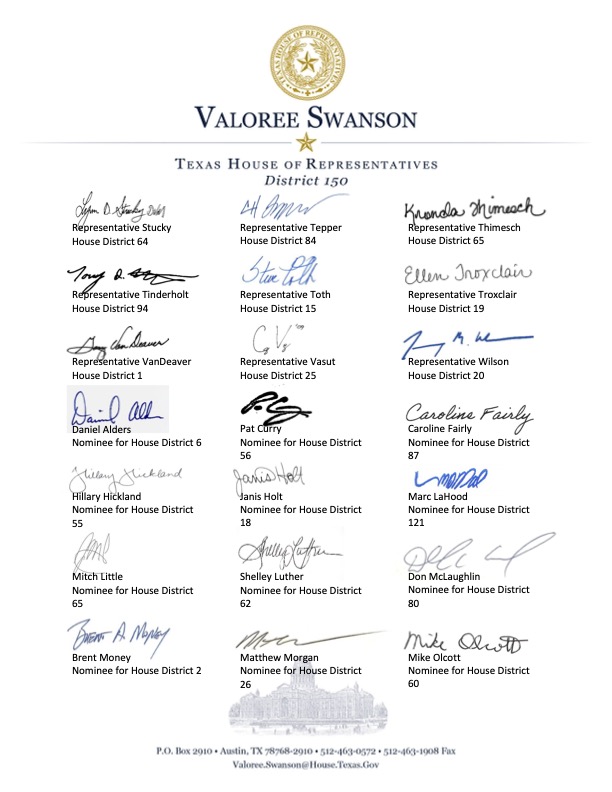 TEXAS HOUSE OF REPRESENTATIVES
VALOREE SWANSON
TEXAS HOUSE OF REPRESENTATIVES
District 150
Representative Stucky
House District 64
Representative Tepper
House District 84
Khonda Thimesch
Representative Thimesch
House District 65
Representative Tinderholt
House District 94
Steve Toth
Representative Toth
House District 15
Ellen Troxclair
Representative Troxclair
House District 19
Gary VanDeaver
Representative VanDeaver
House District 1
Representative Vasut
House District 25
Representative Wilson
House District 20
Daniel Alders
Nominee for House District 6
Pat Curry
Nominee for House District
56
Caroline Fairly
Caroline Fairly
Nominee for House District
87
Hillary Hickland
Hillary Hickland
Nominee for House District
55
Janis Holt
Janis Holt
Nominee for House District
18
Marc LaHood
Nominee for House District
121
Mitch Little
Nominee for House District
65
Shelley Luther
Shelley Luther
Nominee for House District
62
Don McLaughlin
Nominee for House District
80
Brent A. Money
Brent Money
Nominee for House District 2
Matthew Morgan
Nominee for House District
26
Mike Olcott
Mike Olcott
Nominee for House District
60
P.O. Box 2910 • Austin, TX 78768-2910 • 512-463-0572 • 512-463-1908 Fax
Valoree.Swanson@House.Texas.Gov